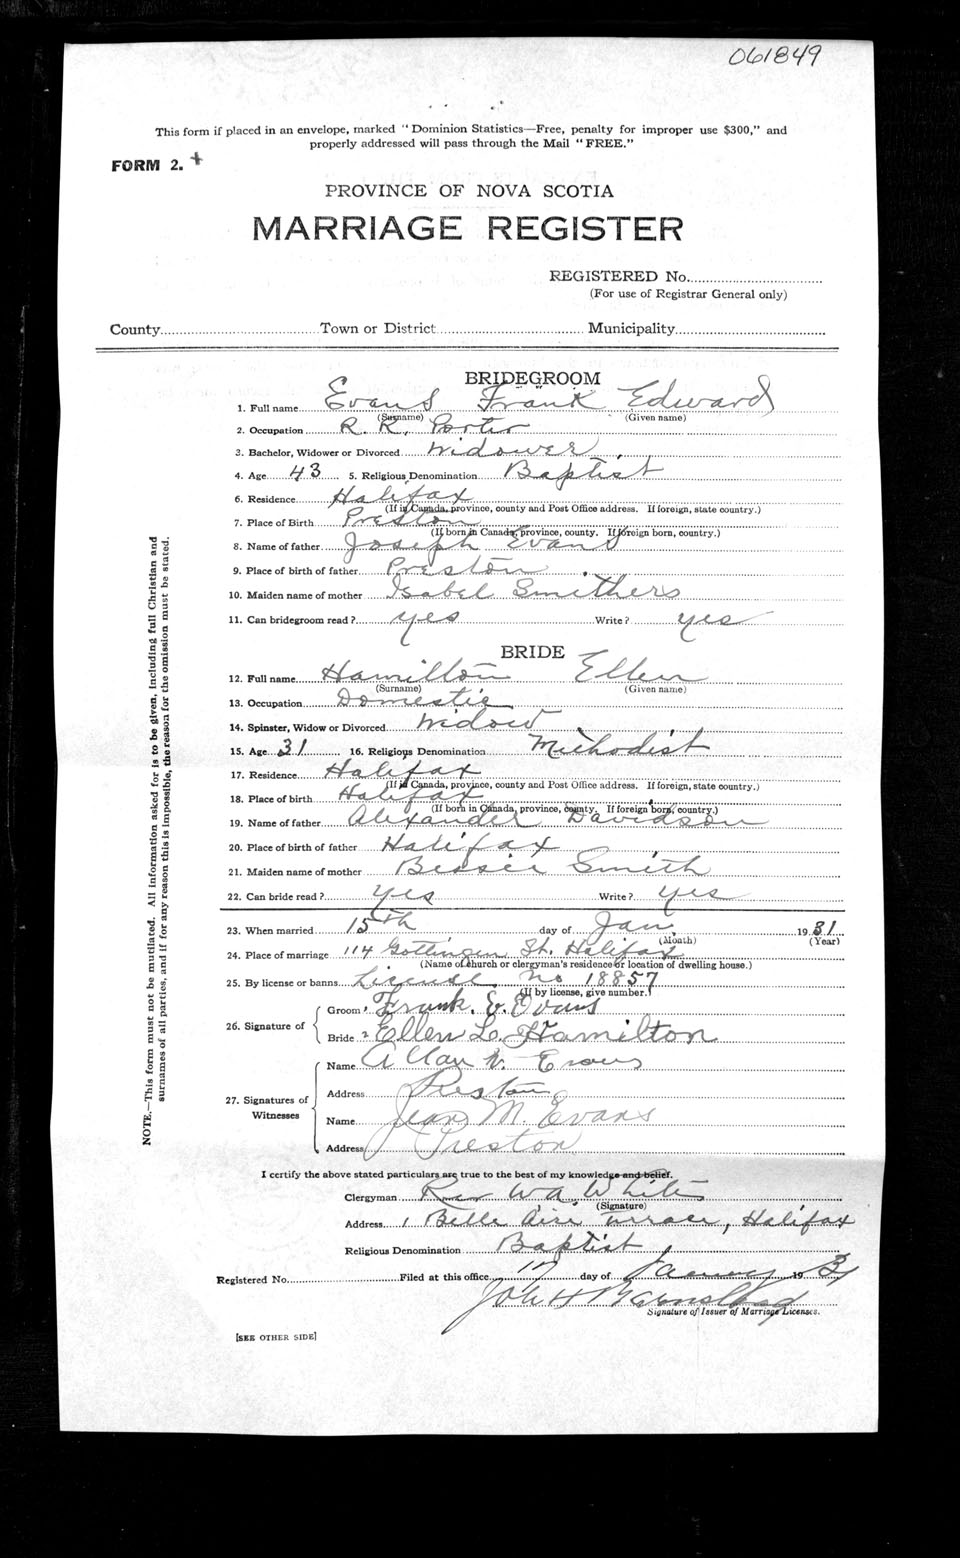 061849
This form if placed in an envelope, marked "Dominion Statistics—Free, penalty for improper use $300," and
properly addressed will pass through the Mail "FREE."
FORM 2. +
PROVINCE OF NOVA SCOTIA
MARRIAGE REGISTER
REGISTERED No.
(For use of Registrar General only)
County Town or District Municipality
BRIDEGROOM
1. Full name Evans Frank Edward
(Surname) (Given name)
2. Occupation R. R. Porter
3. Bachelor, Widower or Divorced Widower
4. Age 43 5. Religious Denomination Baptist
6. Residence Halifax
(If in Canada, province, county and Post Office address. If foreign, state country.)
7. Place of Birth Preston
(If born in Canada, province, county. If foreign born, country.)
8. Name of father Joseph Evans
9. Place of birth of father Preston
10. Maiden name of mother Isabel Smithers
11. Can bridegroom read? yes Write? yes
BRIDE
12. Full name Hamilton Ellen
(Surname) (Given name)
13. Occupation Domestic
14. Spinster, Widow or Divorced Widow
15. Age 31 16. Religious Denomination Methodist
17. Residence Halifax
(If in Canada, province, county and Post Office address. If foreign, state country.)
18. Place of birth Halifax
(If born in Canada, province, county. If foreign born, country.)
19. Name of father Alexander Davidson
20. Place of birth of father Halifax
21. Maiden name of mother Bessie Smith
22. Can bride read? yes Write? yes
23. When married 15th day of Jan. 1931
(Month) (Year)
24. Place of marriage 114 Gottingen St. Halifax
(Name of church or clergyman's residence or location of dwelling house.)
25. By license or banns License No 18857
(If by license, give number.)
26. Signature of
Groom Frank. E. Evans
Bride Ellen L. Hamilton
27. Signatures of Witnesses
Name Allan W. Evans
Address Preston
Name Jean M. Evans
Address Preston
I certify the above stated particulars are true to the best of my knowledge and belief.
Clergyman Rev W. A. White
(Signature)
Address 1 Belle Aire Terrace, Halifax
Religious Denomination Baptist
Registered No. Filed at this office 17 day of January 1931
John H Barnstead
Signature of Issuer of Marriage Licenses.
[SEE OTHER SIDE]
NOTE.—This form must not be mutilated. All information asked for is to be given, including full Christian and
surnames of all parties, and if for any reason this is impossible, the reason for the omission must be stated.